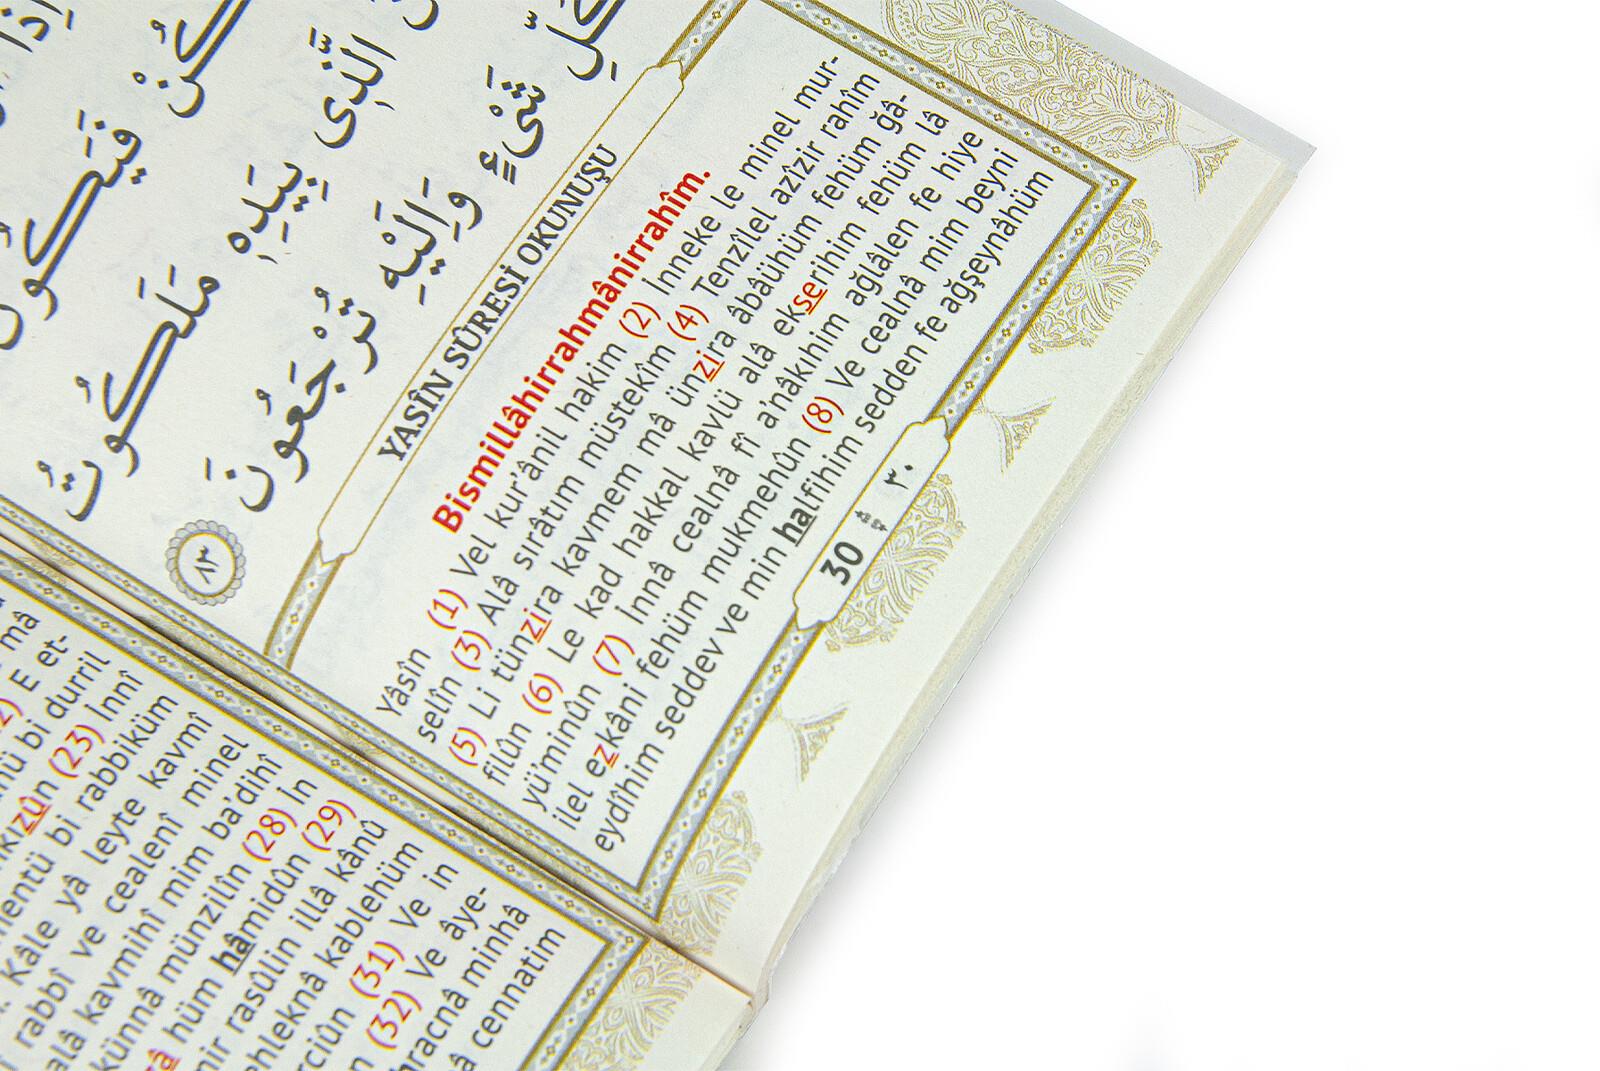 كُنْ فَيَكُونُ
الَّذِى بِيَدِهِ مَلَكُوتُ
كُلِّ شَىْءٍ وَاِلَيْهِ تُرْجَعُونَ
٨٣
YASİN SÛRESİ OKUNUŞU
Bismillâhirrahmânirrahîm.
Yâsîn (1) Vel kur'ânil hakim (2) İnneke le minel mur-
selîn (3) Alâ sırâtım müstekîm (4) Tenzîlel azîzir rahîm
(5) Li tünzira kavmem mâ ünzira âbâühüm fehüm ğâ-
filûn (6) Le kad hakkal kavlü alâ ekserihim fehüm lâ
yü'minûn (7) İnnâ cealnâ fî a'nâkıhim ağlâlen fe hiye
ilel ezkâni fehüm mukmehûn (8) Ve cealnâ mim beyni
eydîhim seddev ve min halfihim sedden fe ağşeynâhüm
30 ٣٠
mâ
E et-
bi durril
(23) İnnî
bi rabbiküm
Kâle yâ leyte kavmî
rabbî ve cealenî minel
alâ kavmihî mim ba'dihî
künnâ münzilîn (28) İn
hüm hâmidûn (29)
rasûlin illâ kânû
ehleknâ kablehüm
(31) Ve in
(32) Ve âye-
minhâ
cennatim